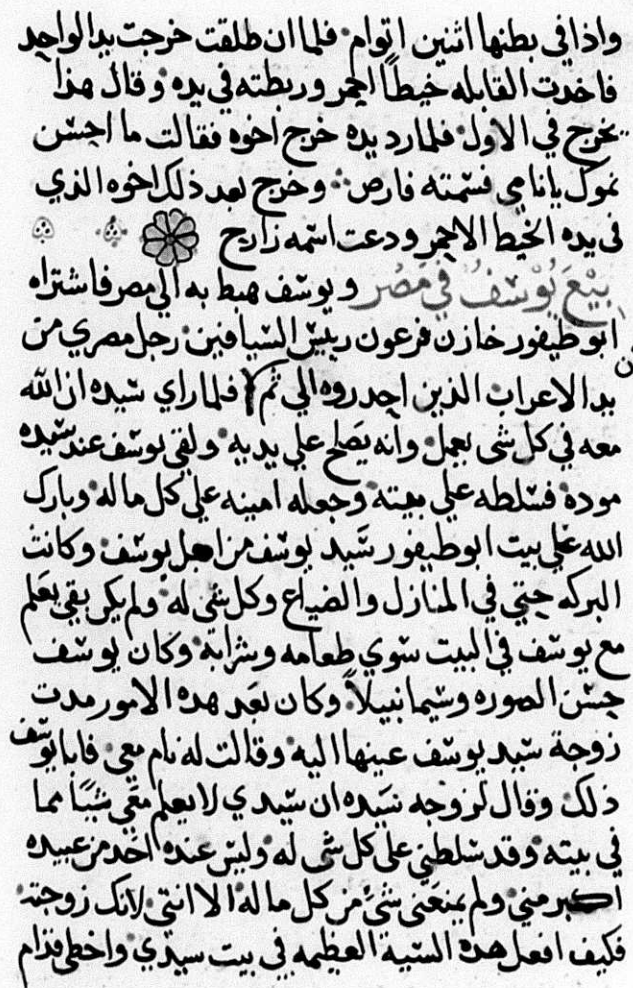 واذا في بطنها اثنين اتوام فلما ان طلقت خرجت يد الواحد
فاخدت القابله خيطاً احمر وربطته في يده وقال هذا
يخرج في الاول فلما رد يده خرج اخوه فقالت ما احسن
نموك يا نامي فسمته فارص وخرج بعد ذلك اخوه الذي
في يده الخيط الاحمر ودعت اسمه زارح
بيع يوسف في مصر ويوسف هبط به الي مصر فاشتراه
ابو طيفور خازن فرعون رييس السيافين رجل مصري من
يد الاعراب الذين احدروه الي ثم فلما راي سيده ان الله
معه في كل شي يعمل وانه يصلح علي يديه ولقي يوسف عند سيده
موده فسلطه علي بيته وجعله امينه علي كل ماله وبارك
الله علي بيت ابو طيفور سيد يوسف من اهل يوسف وكانت
البركه حتي في المنازل والضياع وكل شي له ولم يكن بقي يعلم
مع يوسف في البيت سوي طعامه وشرابه وكان يوسف
حسن الصوره وسيما نبيلاً وكان بعد هده الامور مدت
زوجة سيد يوسف عينها اليه وقالت له نام معي فابا يوسف
ذلك وقال لزوجه سيده ان سيدي لا يعلم معي شياً مما
في بيته وقد سلطني علي كل شي له وليس عنده احد من عبيده
اكبر مني ولم يمنعني شي من كل ماله الا انتي لانك زوجته
فكيف افعل هده السية العظيمه في بيت سيدي واخطي قدام